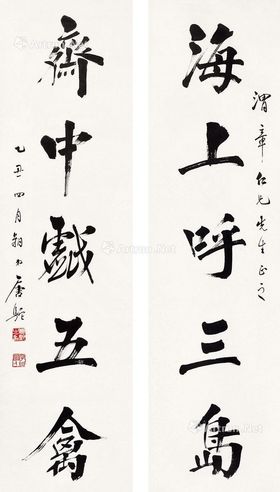 渭章仁兄先生正之
海上呼三島
齋中戲五禽
乙丑四月朔日唐駝